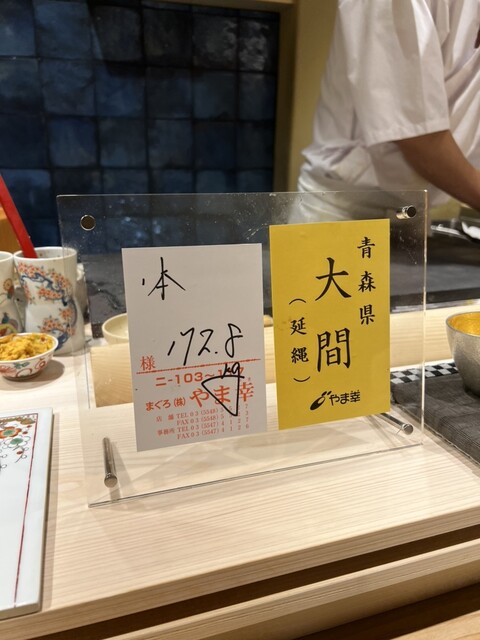 本
172.8
kg
様
ニ-103~
まぐろ(株)やま幸
店舗 TEL 03(5548)
FAX 03(5548)
事務所 TEL 03(5547)
FAX 03(5547)
青森県
大間
(延縄)
やま幸